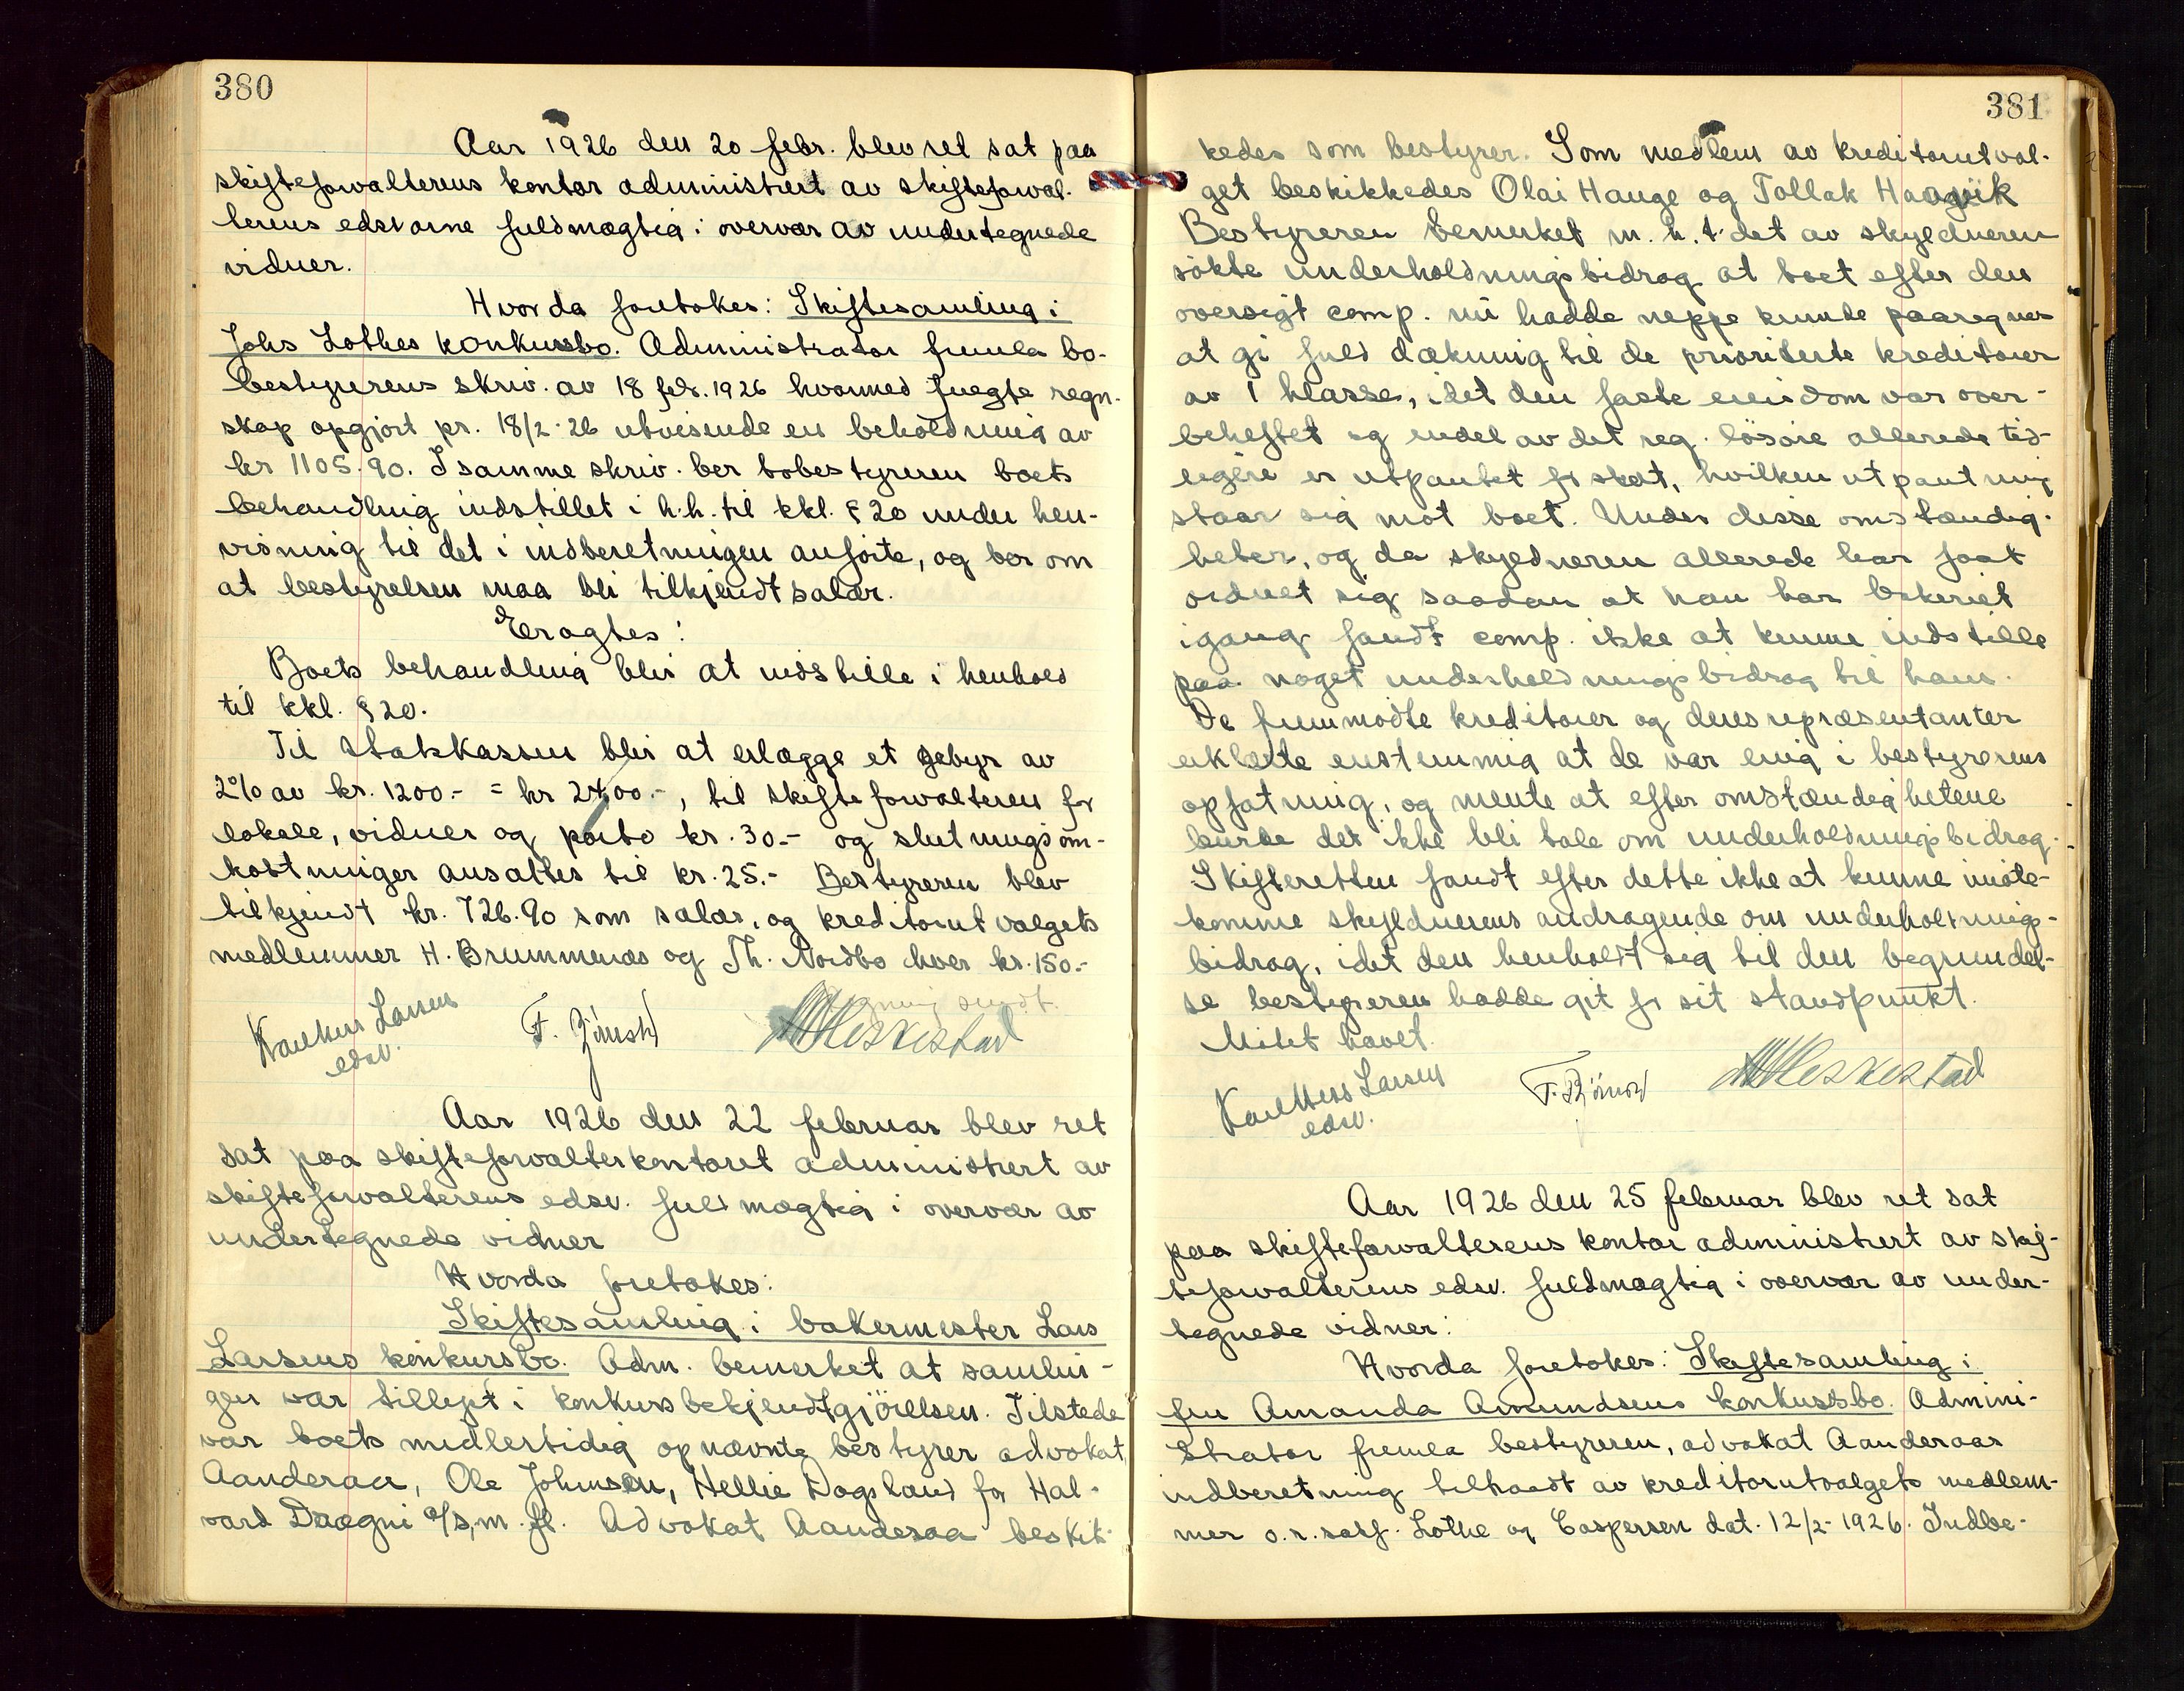 380
Aar 1926 den 20 febr. blev ret sat paa
skifteforvalterens kontor administrert av skifteforval-
terens edsvorne fuldmægtig i overvær av undertegnede
vidner.
Hvorda foretokes: Skiftesamling i
Johs Lothes konkursbo. Administrator fremla bo-
bestyrerens skriv. av 18 febr. 1926 hvormed fulgte regn-
skap opgjort pr. 18/2-26 utvisende en beholdning av
kr 1105.90. I samme skriv. ber bobestyreren boets
behandling indstillet i h.h. til kkl. § 20 under hen-
visning til det i indberetningen anførte, og ber om
at bestyrelsen maa bli tilkjendt salær.
Eragtes:
Boets behandling blir at indstille i henhold
til kkl. § 20.
Til Statskassen blir at erlægge et gebyr av
2% av kr. 1200.- = kr 24,00.-, til skifteforvalteren for
lokale, vidner og porto kr. 30.- og slutningsom-
kostninger ansattes til kr. 25.- Bestyreren blev
tilkjendt kr. 726.90 som salær, og kreditorutvalgets
medlemmer H. Brummenæs og Th. Nordbø hver kr. 150.-
sendt.
Karl Larsen
edsv.
F. M Heskestad
Aar 1926 den 22 februar blev ret
sat paa skifteforvalterkontoret administrert av
skifteforvalterens edsv. fuldmægtig i overvær av
undertegnede vidner
Hvorda foretokes:
Skiftesamling i bakermester Lars
Larsens konkursbo. Adm. bemerket at samlin-
gen var tillyst i konkursbekjendtgjörelsen. Tilstede
var boets midlertidig opnævnte bestyrer advokat
Aanderaa, Ole Johnsen, Hellie Dagsland for Hal-
vard a/s, m. fl. Advokat Aanderaa beskik-
381
kedes som bestyrer. Som medlem av kreditorutval-
get beskikkedes Olai Hauge og Tollak Haavik
Bestyreren bemerket m. h. t. det av skyldneren
søkte underholdningsbidrag at boet efter den
oversigt comp. nu hadde neppe kunde paaregnes
at gi fuld dækning til de prioriterte kreditorer
av 1 klasse, idet den faste eiendom var over-
beheftet og endel av det reg. løsøre allerede tid-
ligere er utpantet for skat, hvilken utpantning
staar sig mot boet. Under disse omstændig-
heter, og da skyldneren allerede har faat
ordnet sig saadan at han har bakeriet
igang fandt comp. ikke at kunne indstille
paa noget underholdningsbidrag til ham.
De fremmødte kreditorer og deres repræsentanter
erklærte enstemmig at de var enig i bestyrerens
opfatning, og mente at efter omstændighetene
burde det ikke bli tale om underholdningsbidrag.
Skifteretten fandt efter dette ikke at kunne imøte-
komme skyldnerens andragende om underholdnings-
bidrag, idet den henholdt sig til den begrundel-
se bestyreren hadde git for sit standpunkt.
Møtet hævet.
Karl Larsen
edsv.
F. M Heskestad
Aar 1926 den 25 februar blev ret sat
paa skifteforvalterens kontor administrert av skif-
teforvalterens edsv. fuldmægtig i overvær av under-
tegnede vidner:
Hvorda foretokes: Skiftesamling i
fru Amanda Amundsens konkursbo. Admini-
strator fremla bestyreren, advokat Aanderaas
indberetning tiltraadt av kreditorutvalgets medlem-
mer o.r.sakf. Lothe og Caspersen dat. 12/2-1926. Indbe-